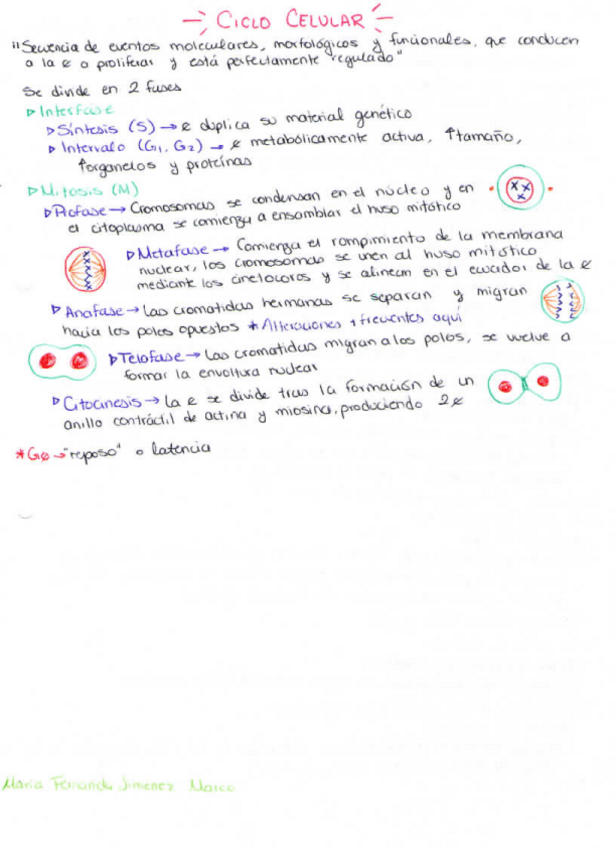 CICLO CELULAR
"Secuencia de eventos moleculares, morfológicos y funcionales, que conducen
a la ¢ a proliferar y está perfectamente regulado"
Se divide en 2 fases
▷ Interfase
▷ Síntesis (S) → ¢ duplica su material genético
▷ Intervalo (G1, G2) → ¢ metabólicamente activa, ↑tamaño,
↑organelos y proteínas
▷ Mitosis (M)
▷ Profase → Cromosomas se condensan en el núcleo y en
el citoplasma se comienza a ensamblar el huso mitótico
▷ Metafase → Comienza el rompimiento de la membrana
nuclear, los cromosomas se unen al huso mitótico
mediante los cinetocoros y se alinean en el ecuador de la ¢
▷ Anafase → Las cromatidas hermanas se separan y migran
hacia los polos opuestos * Alteraciones + frecuentes aquí
▷ Telofase → Las cromatidas migran a los polos, se vuelve a
formar la envoltura nuclear
▷ Citocinesis → La ¢ se divide tras la formación de un
anillo contráctil de actina y miosina, produciendo 2¢
* GØ → "reposo" o latencia
María Fernanda Jimenez